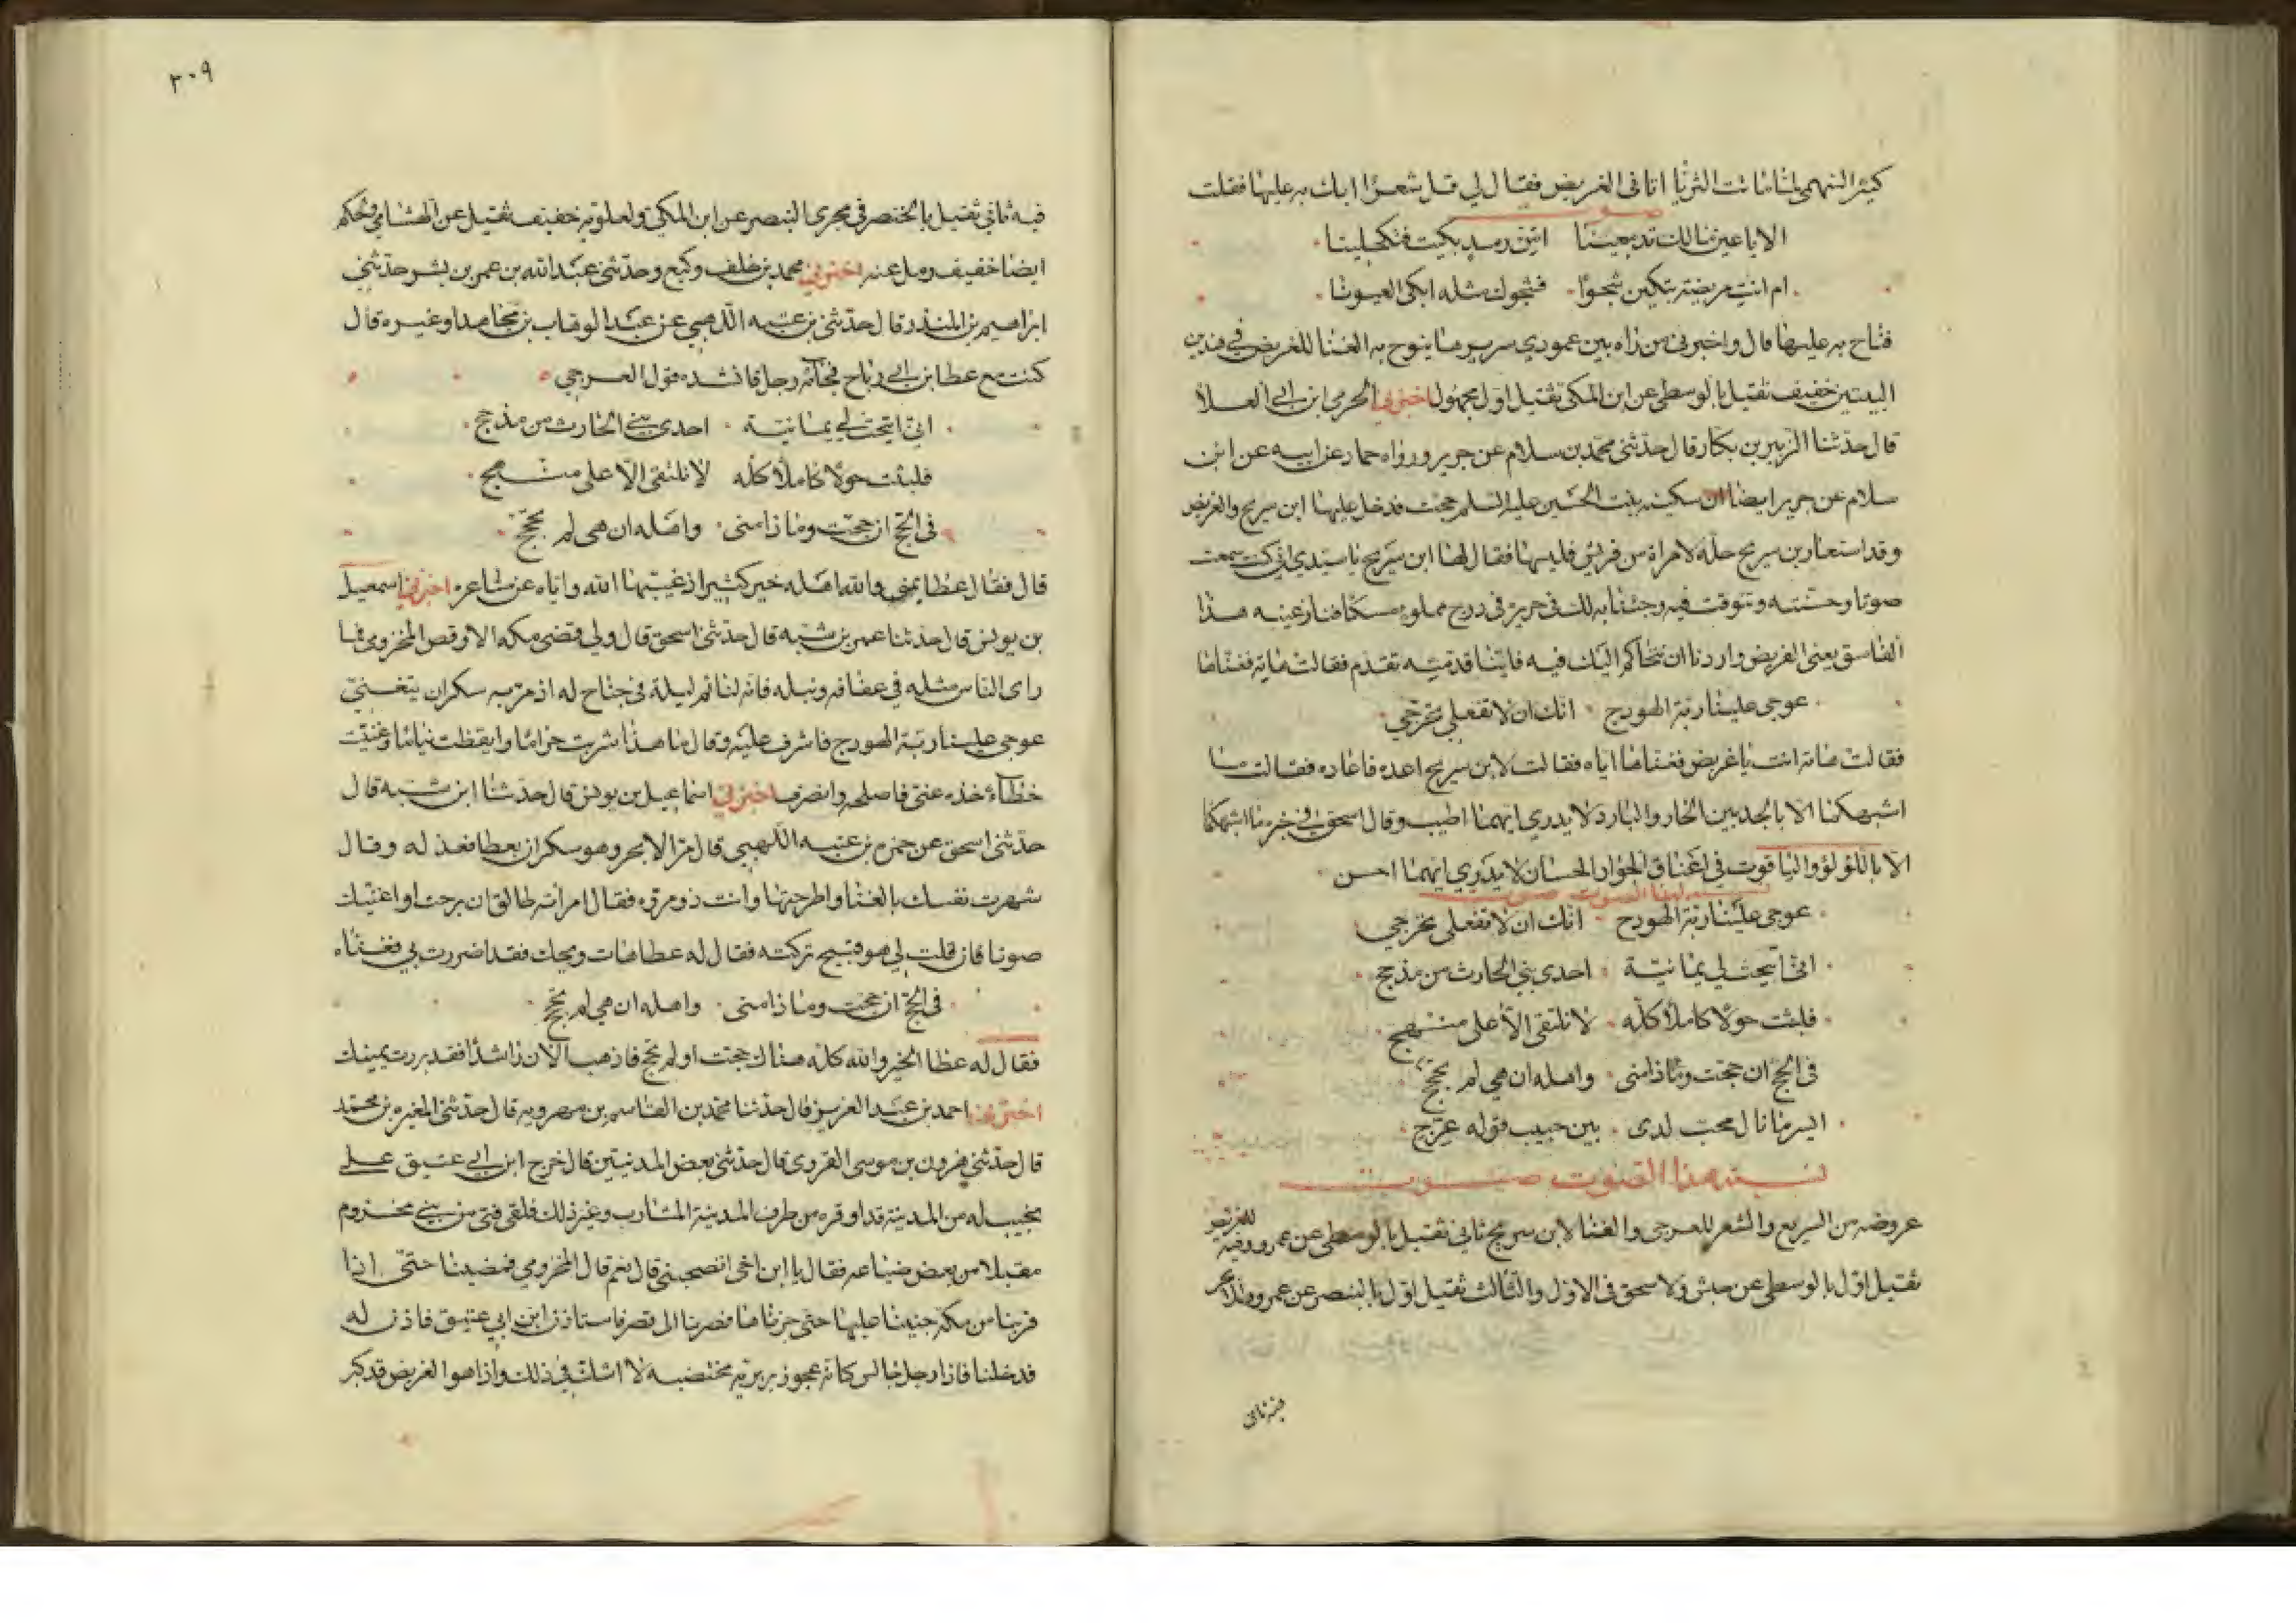 كثير النهمي لما ماتت الثريا اتاني الغريض فقال لي قل شعرا ابك به عليها فقلت
صوت
الا يا عين مالك تدمعينا امن رمد بكيت فتكحلينا
ام انت مريضة تبكين شجوا فشجوك مثله ابكى العيونا
فناح به عليها قال واخبرني من راه بين عمودي سرير ما ينوح به الغنا للغريض في هذين
البيتين خفيف ثقيل بالوسطى عن ابن المكي ثقيل اول مجهول اخبرني الحرمي ابن ابي العلا
قال حدثنا الزبير بن بكار قال حدثني محمد بن سلام عن جرير ورواه حماد عن ابيه عن ابن
سلام عن جرير ايضا ان سكينه بنت الحسين عليه السلم حجت فدخل عليها ابن سريج والغريض
وقد استعار بن سريج حله لامراة من قريش فلبسها فقال لها ابن سريج يا سيدتي اني كنت سمعت
صوتا وحسنته وتنوقت فيه وجئتنا به لك في حريرة في درج مملوء مسكا فنازعنيه هذا
الفاسق يعني الغريض واردنا ان نتحاكم اليك فيه فاينا قدمته تقدم فقالت هاته فغناها
عوجي علينا ربة الهودج انك ان لا تفعلي تحرجي
فقالت هاته انت يا غريض فغناها اياه فقالت لابن سريج اعده فاعاده فقالت ما
اشبهكما الا بالجديين الحار والبارد لا يدرى ايهما اطيب وقال اسحق في خبره ما اشبهكما
الا باللؤلؤ والياقوت في اعناق الجوار الحسان لا يدري ايهما احسن
نسبة هذا الصوت صوت
عوجي علينا ربة الهودج انك ان لا تفعلي تحرجي
اني اتيحت لي يمانية احدى بني الحارث من مذحج
فلبثت حولا كاملا كله لا نلتقي الا على منهج
في الحج ان حجت وماذا منى واهله ان هي لم تحجج
ايسر ما نال محب لدى بين حبيب قوله عرج
نسبة هذا الصوت صوت
عروضه من السريع والشعر للعرجي والغنا لابن سريج ثاني ثقيل بالوسطى عن عمرو وفيه للغريض
ثقيل اول بالوسطى عن حبش ولاسحق في الاول والثالث ثقيل اول بالبنصر عن عمرو
فيه ثاني
٢٠٩
فيه ثاني ثقيل بالخنصر في مجرى البنصر عن ابن المكي ولعلويه خفيف ثقيل عن الهشامي وحكم
ايضا خفيف رمل عنه اخبرني محمد بن خلف وكيع وحدثني عبد الله بن عمر بن بشر حدثني
ابراهيم بن المنذر قال حدثني بن عتبه اللهبي عن عبد الوهاب بن مجاهد او غيره قال
كنت مع عطا بن ابي رباح فجاءه رجل فانشده قول العرجي
اني اتيحت لي يمانية احدى بني الحارث من مذحج
فلبثت حولا كاملا كله لا نلتقي الا على منهج
في الحج ان حجت وماذا منى واهله ان هي لم تحجج
قال فقال عطا بمنى والله اهله خير كثير اذ غيبها الله واياه عن مشاعره اخبرني اسمعيل
بن يونس قال حدثنا عمر بن شبه قال حدثني اسحق قال ولي قضى مكه الاوقص المخزومي فما
راى الناس مثله في عفافه ونبله فانه لنائم ليلة في جناح له اذ مر به سكران يتغنى
عوجي علينا ربة الهودج فاشرف عليه وقال يا هذا شربت حراما وايقظت نياما وغنيت
خطاء خذه عني فاصلحه وانصرف اخبرني اسماعيل بن يونس قال حدثنا ابن شبه قال
حدثني اسحق عن حمزه بن عتبه اللهبي قال مر الابجر وهو سكران بعطا فعذله وقال
شهرت نفسك بالغنا واطرحتها وانت ذو مروه فقال امراته طالق ان برحت او اغنيك
صوتا فان قلت لي هو قبيح تركته فقال له عطا هات ويحك فقد اضررت بي فغناه
في الحج ان حجت وماذا منى واهله ان هي لم تحجج
فقال له عطا الخير والله كله هناك حجت او لم تحج فاذهب الان راشدا فقد بررت يمينك
اخبرني احمد بن عبد العزيز قال حدثنا محمد بن القاسم بن مهرويه قال حدثني المغيره بن محمد
قال حدثني هرون بن موسى الفروي قال حدثني بعض المدنيين قال خرج ابن ابي عتيق على
نجيب له من المدينة قد اوقره من طرف المدينة المشارب وغير ذلك فلقى فتى من بني مخزوم
مقبلا من بعض ضياعه فقال يا ابن اخي اتصحبني قال نعم قال المخزومي فمضينا حتى اذا
قربنا من مكة جنبنا عليها حتى جزناها فصرنا الى قصر فاستاذن ابن ابي عتيق فاذن له
فدخلنا فاذا رجل جالس كانه عجوز بربرية مختضبه لا اشك في ذلك واذا هو الغريض قد كبر